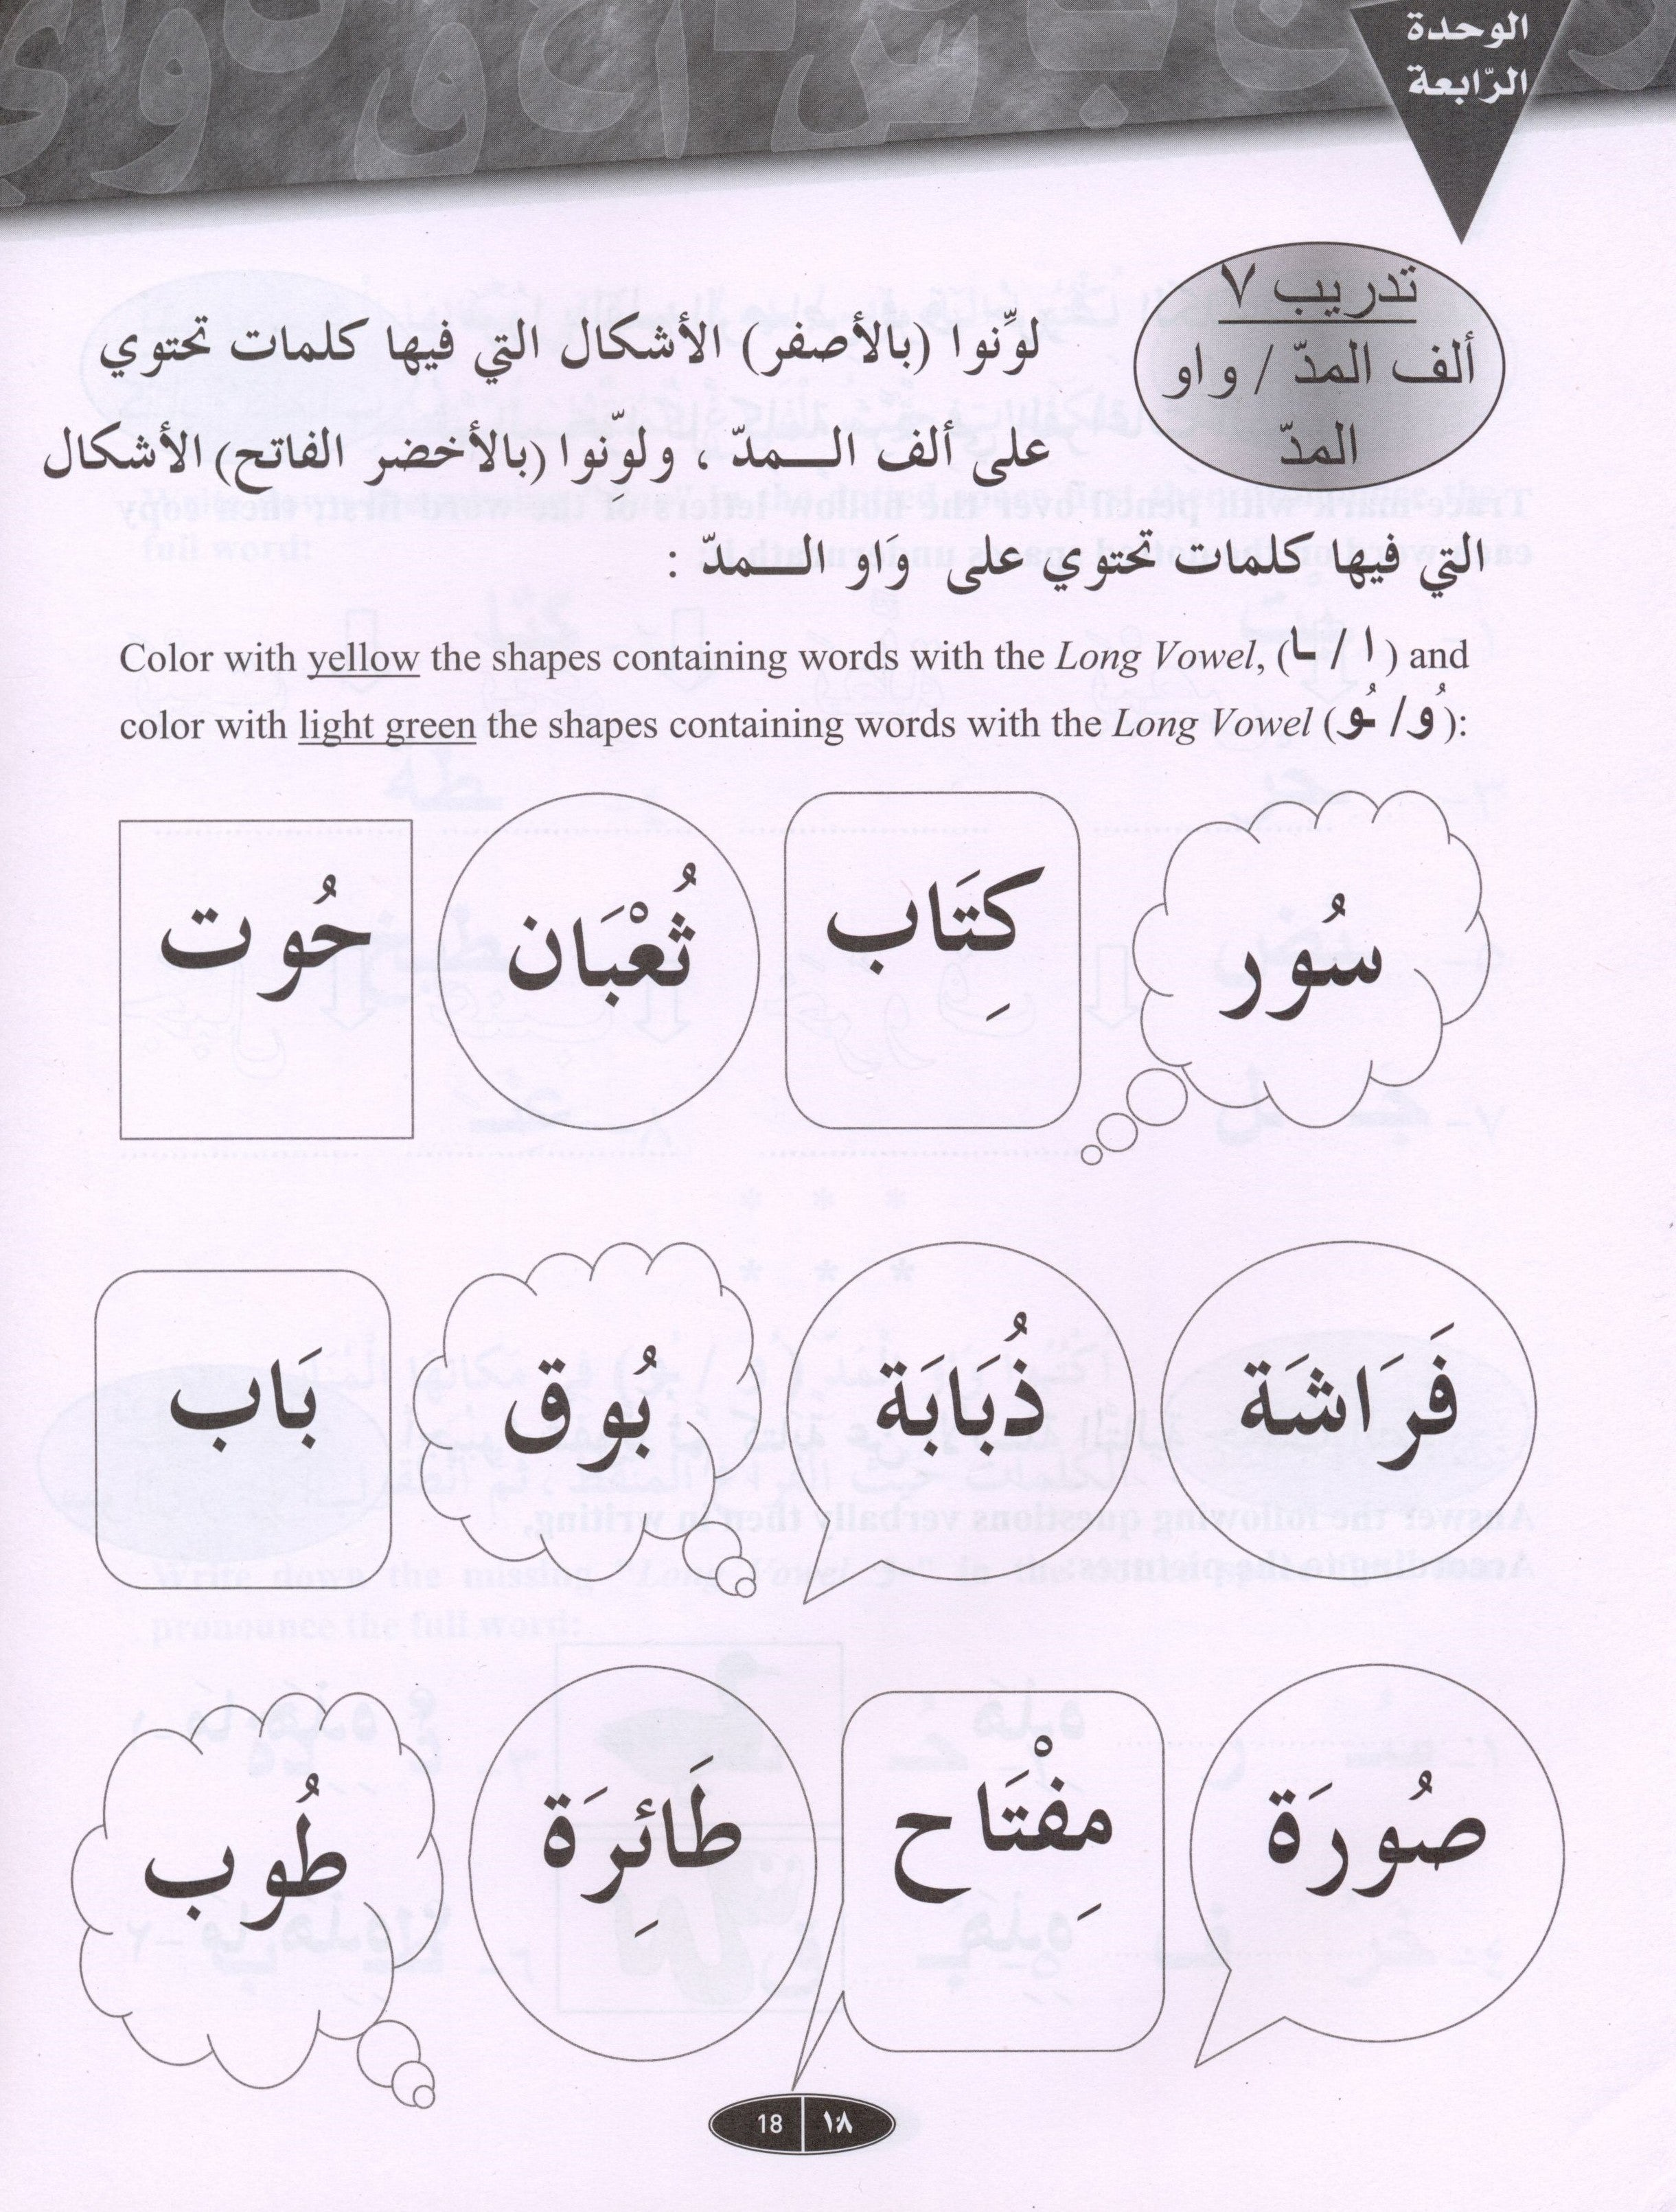 الوحدة
الرّابعة
تدريب ٧
ألف المدّ / واو
المدّ
لوِّنوا (بالأصفر) الأشكال التي فيها كلمات تحتوي
على ألف الـــمدّ ، ولوِّنوا (بالأخضر الفاتح) الأشكال
التي فيها كلمات تحتوي على وَاو الـــمدّ :
Color with yellow the shapes containing words with the Long Vowel, (ا / ـا) and
color with light green the shapes containing words with the Long Vowel (ـُو / وُ):
سُور كِتَاب ثُعْبَان حُوت
فَرَاشَة ذُبَابَة بُوق بَاب
صُورَة مِفْتَاح طَائِرَة طُوب
18 ١٨